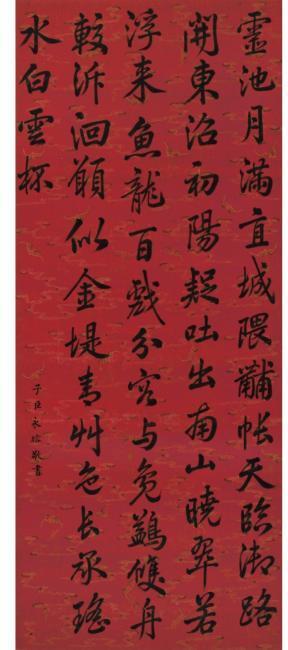 靈池月滿直城隈黼帳天臨御路
開東沼初陽疑吐出南山曉翠若
浮来魚龍百戲分容与鳧鷁雙舟
較泝洄願似金堤青艸色長承瑤
水白雲杯
子臣永瑢敬書